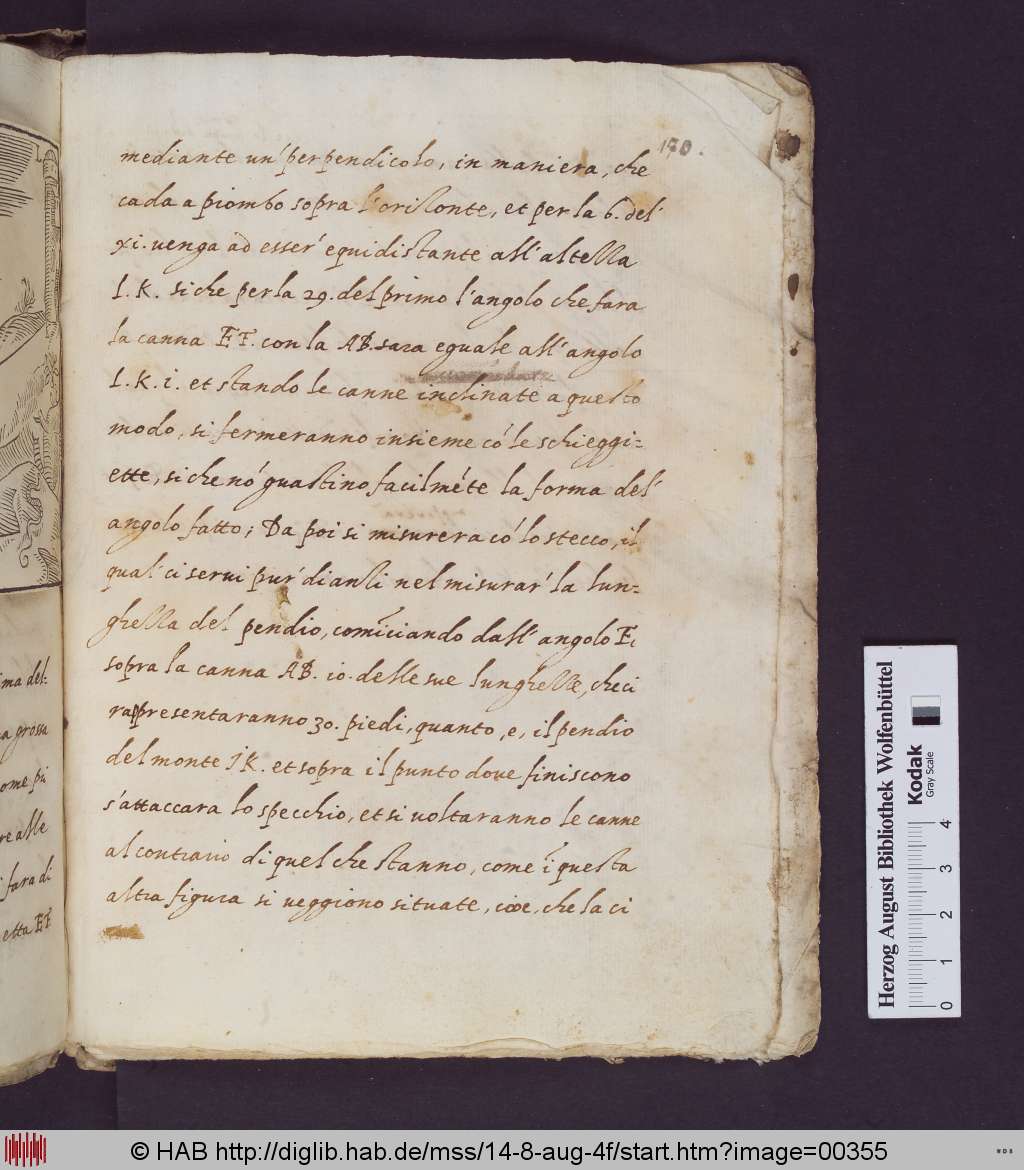 170.
mediante un' perpendicolo, in maniera, che
cada a piombo sopra l'orizonte, et per la 6. del'
xi. uenga ad esser' equidistante all' altezza
I. K. si che per la 29. del primo l'angolo che fara
la canna EF. con la AB. sara eguale all' angolo
I. K. i. et stando le canne inclinate a questo
modo, si fermeranno insieme có le schieggi=
ette, si che nó guastino facilméte la forma del'
angolo fatto; Da poi si misurera có lo stecco, il
qual' ci serui pur' dianzi nel misurar' la lun=
ghezza del pendio, comíciando dall' angolo E,
sopra la canna AB. io. delle sue lunghezze, che ci
rappresentaranno 30. piedi, quanto, e, il pendio
del monte IK. et sopra il punto doue finiscono
s'attaccara lo specchio, et si uoltaranno le canne
al contrario di quel che stanno, come í questa
altra figura si ueggiono situate, cioe, che la ci
ima del=
a grossa
ome piu
re alle
fara di
etta EF
Herzog August Bibliothek Wolfenbüttel
Kodak
Gray Scale
0 1 2 3 4
© HAB http://diglib.hab.de/mss/14-8-aug-4f/start.htm?image=00355